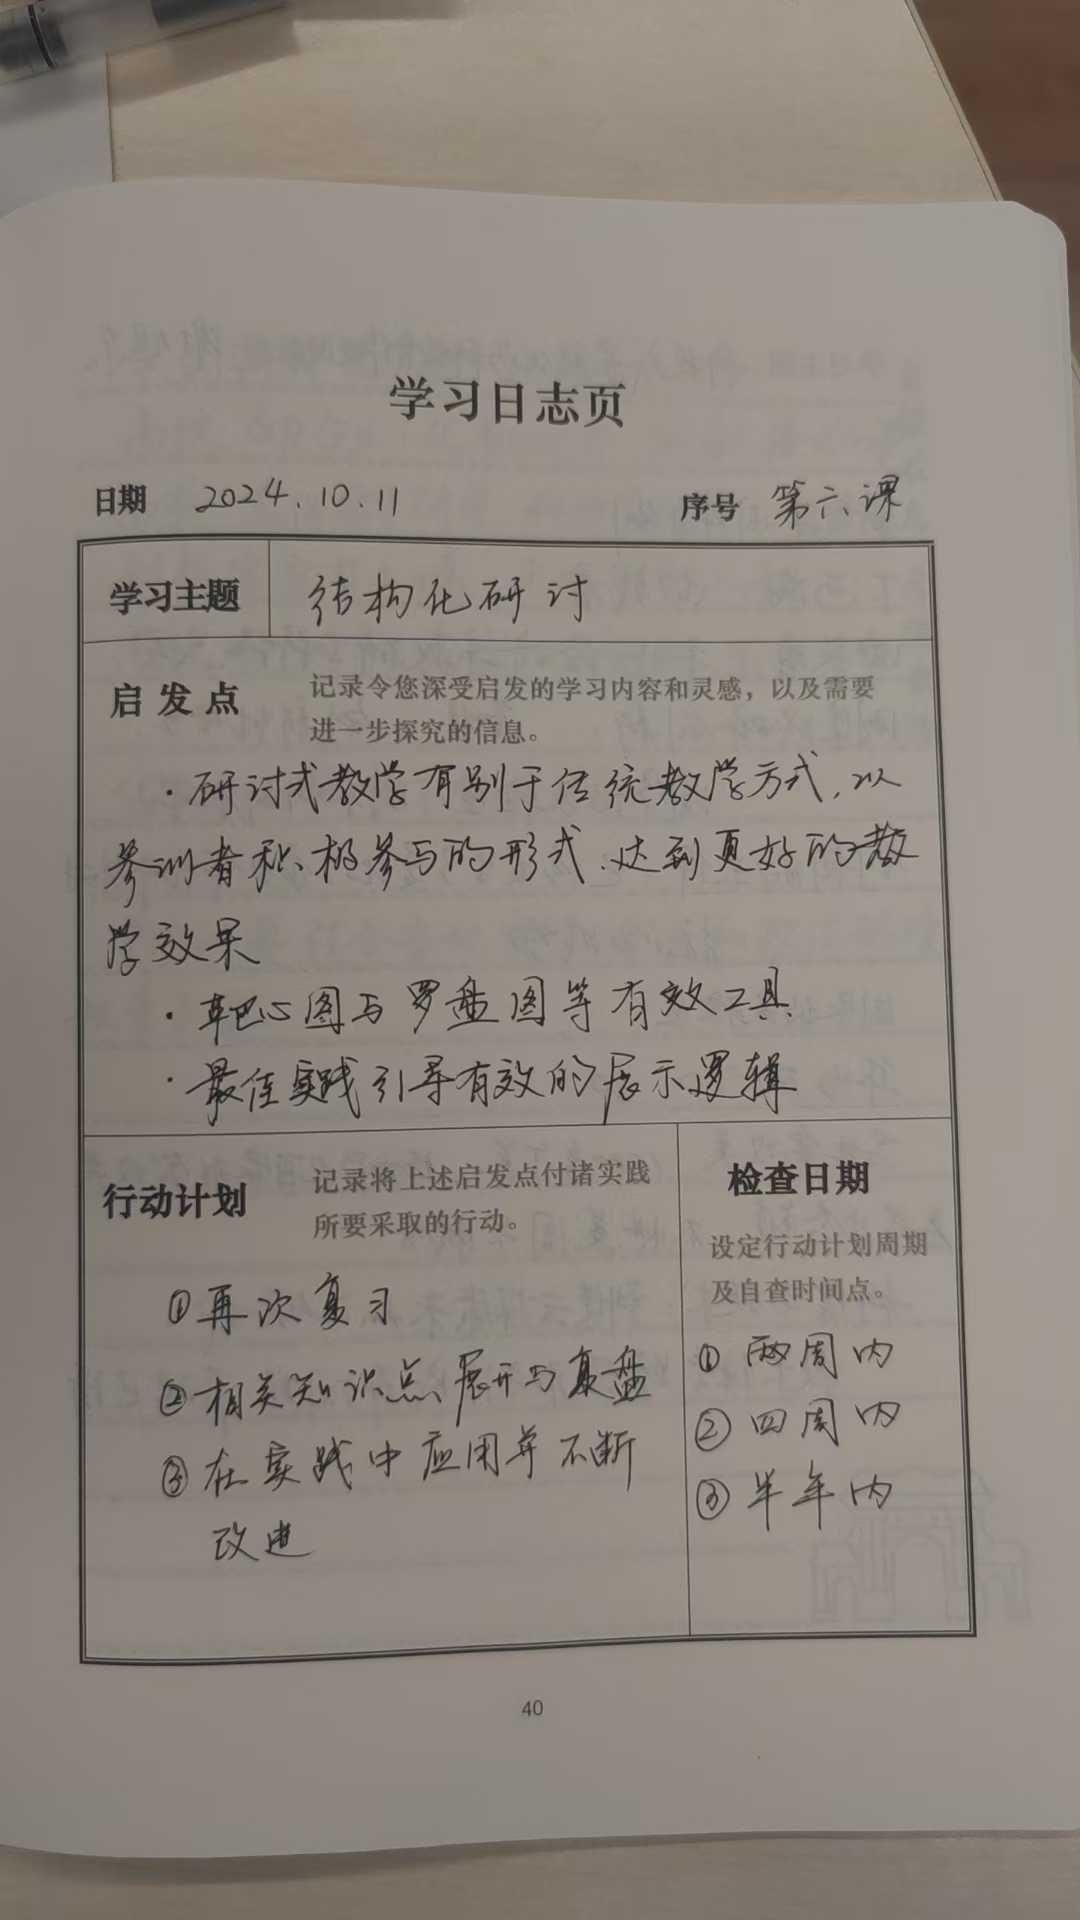 学习日志页
日期 2024.10.11 序号 第六课
学习主题 结构化研讨
启发点 记录令您深受启发的学习内容和灵感，以及需要
进一步探究的信息。
·研讨式教学有别于传统教学方式，以
参训者积极参与的形式、达到更好的教
学效果
·靶心图与罗盘图等有效工具
·最佳实践引导有效的展示逻辑
行动计划 记录将上述启发点付诸实践
所要采取的行动。
①再次复习
②相关知识点展开与复盘
③在实践中应用并不断
改进
检查日期
设定行动计划周期
及自查时间点。
①两周内
②四周内
③半年内
40